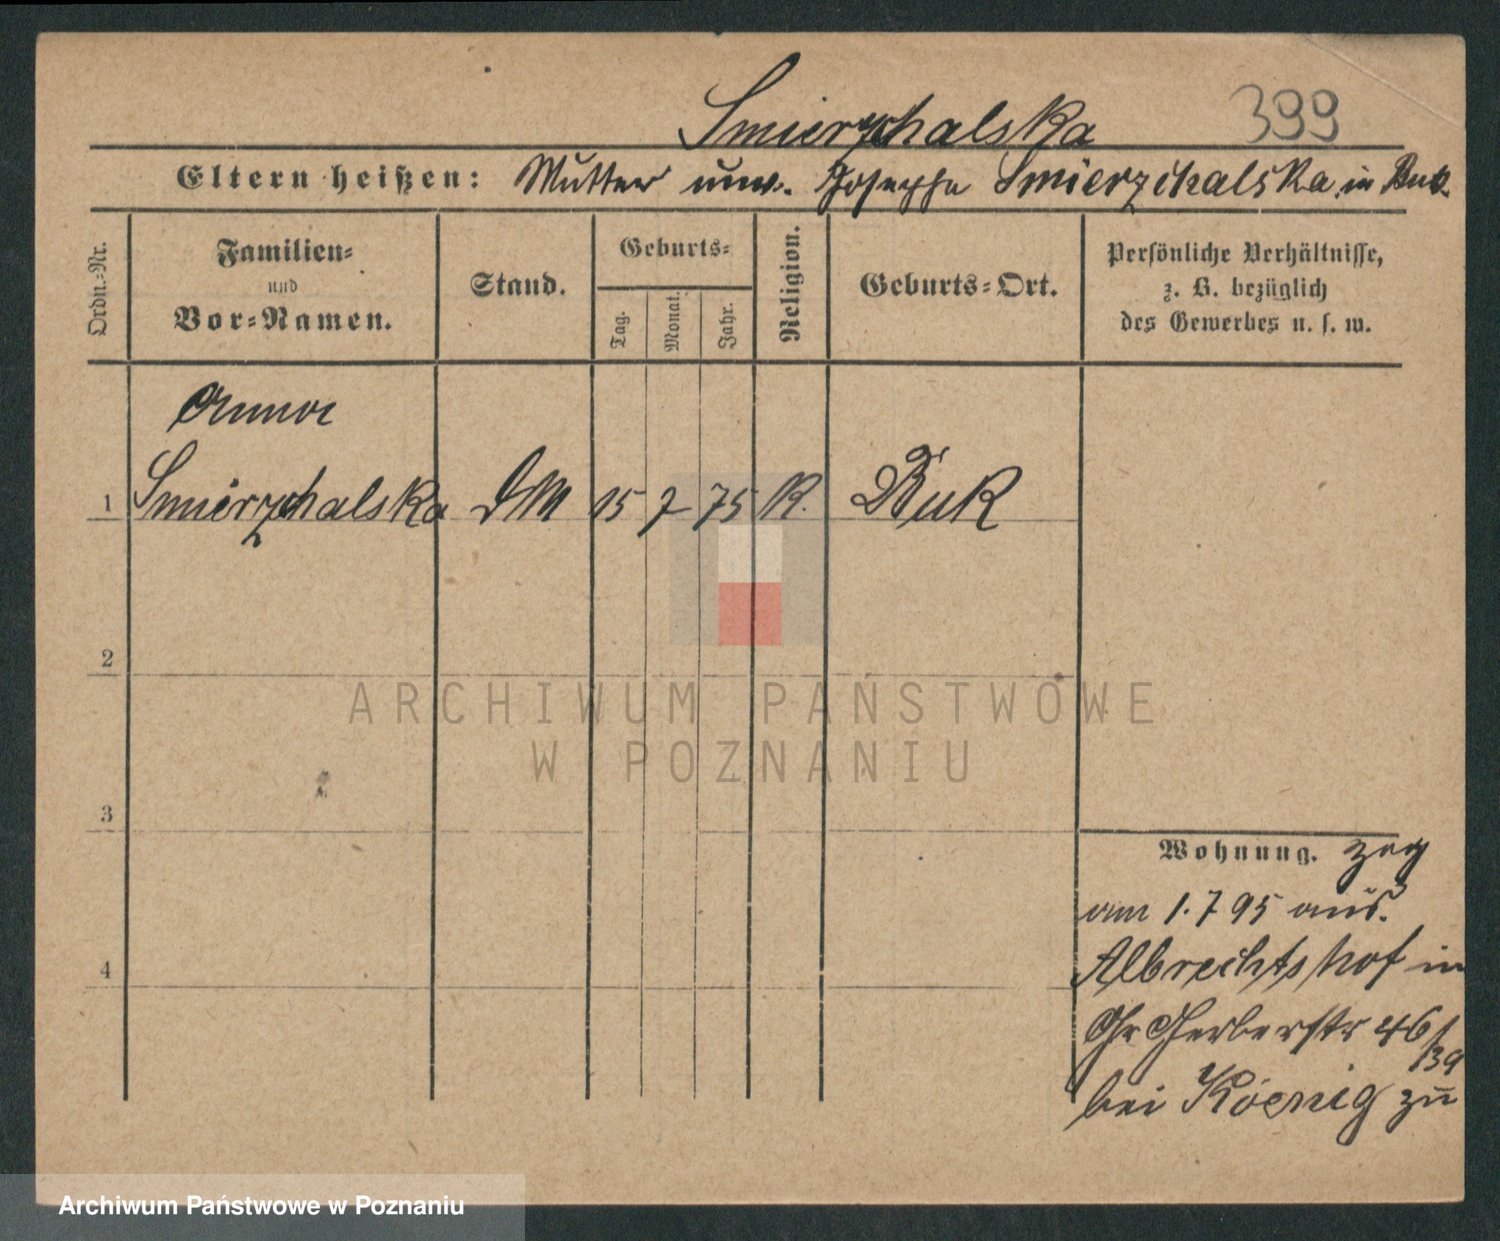 Smierzchalska 399
Eltern heißen: Mutter unv. Josepha Smierzchalska in Buk
Ordn.-Nr.
Familien-
und
Vor-Namen.
Stand.
Geburts-
Tag.
Monat.
Jahr.
Religion.
Geburts-Ort.
Persönliche Verhältnisse,
z. B. bezüglich
des Gewerbes u. s. w.
Anna
1 Smierzchalska DM 15 7 75 K. Buk
2
3
4
Wohnung. zog
am 1. 7 95 aus
Albrechtshof in
Gr Gerberstr 46/
39
bei Koenig zu
ARCHIWUM PAŃSTWOWE
W POZNANIU
Archiwum Państwowe w Poznaniu